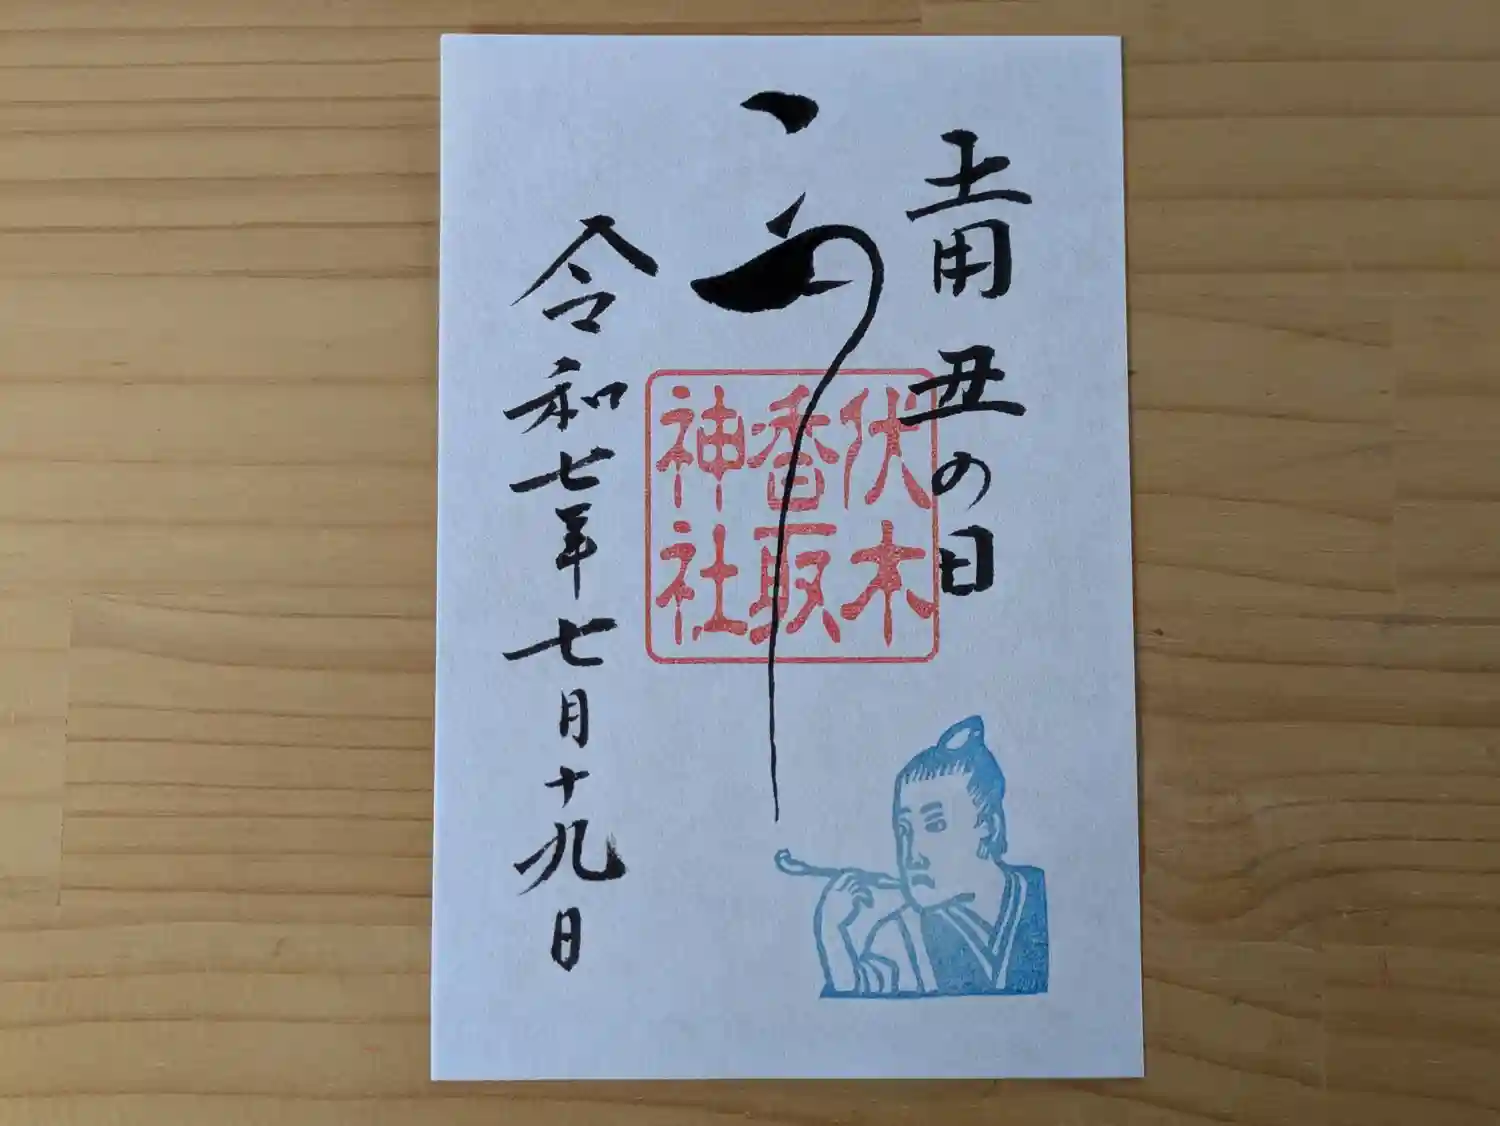 土用丑の日
う
伏木
香取
神社
令和七年七月十九日